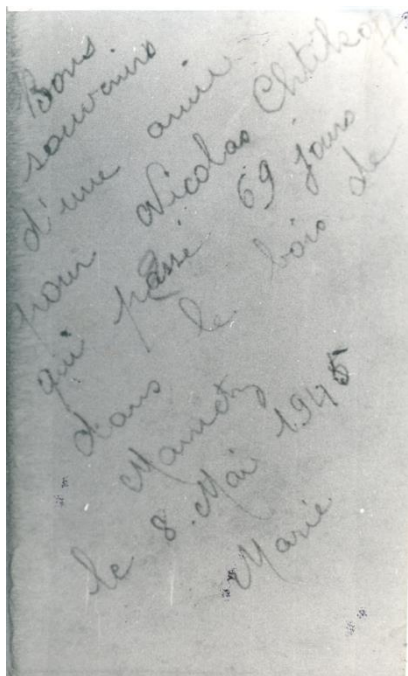 Bons
souvenirs
d'une amie
pour Nicolas
qui passé 69 jours
dans le bois de
le 8. Mai 1945
Marie